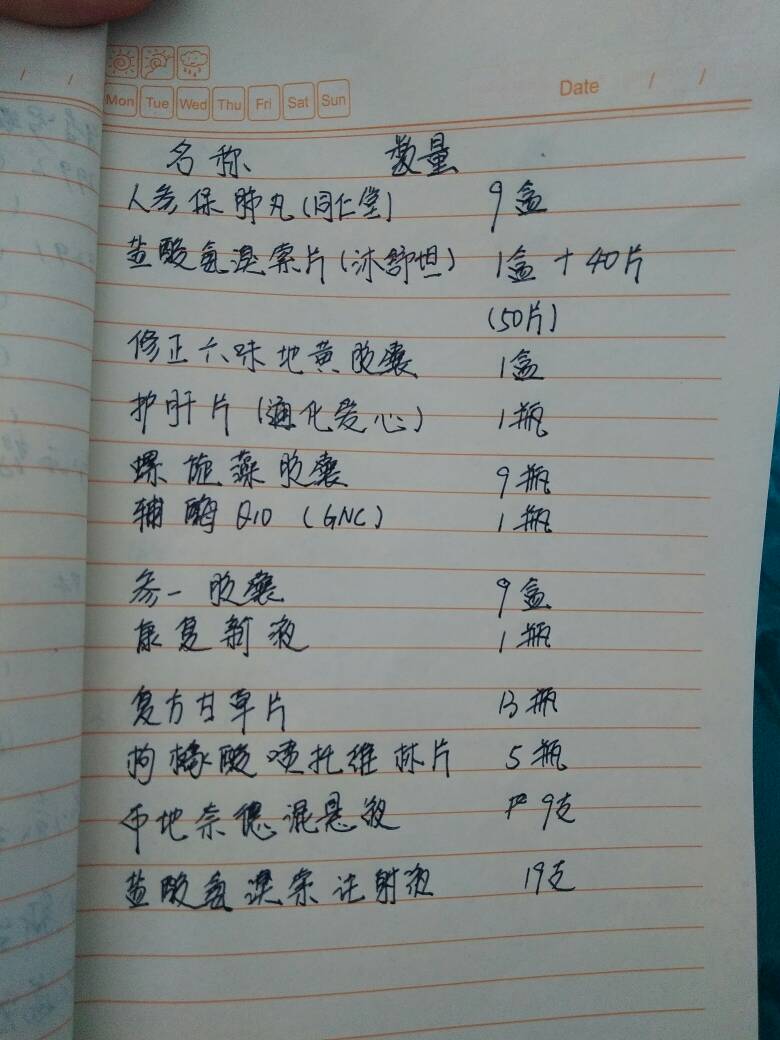 Mon Tue Wed Thu Fri Sat Sun
Date / /
名称 数量
人参保肺丸(同仁堂) 9盒
盐酸氨溴索片(沐舒坦) 1盒+40片
(50片)
修正六味地黄胶囊 1盒
护肝片(通化爱心) 1瓶
螺旋藻胶囊 9瓶
辅酶Q10 (GNC) 1瓶
参一胶囊 9盒
康复新液 1瓶
复方甘草片 13瓶
枸橼酸喷托维林片 5瓶
布地奈德混悬液 9支
盐酸氨溴索注射液 19支